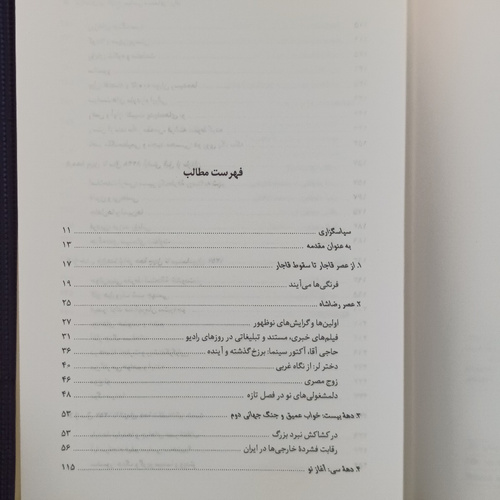 فهرست مطالب
سپاسگزاری ۱۱
به عنوان مقدمه ۱۳
۱. از عصر قاجار تا سقوط قاجار ۱۷
فرنگی‌ها می‌آیند ۱۹
۲. عصر رضاشاه ۲۵
اولین‌ها و گرایش‌های نوظهور ۲۷
فیلم‌های خبری، مستند و تبلیغاتی در روزهای رادیو ۳۱
حاجی آقا، آکتور سینما: برزخ گذشته و آینده ۳۶
دختر لر: از نگاه غربی ۴۰
زوج مصری ۴۶
دلمشغولی‌های نو در فصل تازه ۴۸
۳. دههٔ بیست: خواب عمیق و جنگ جهانی دوم ۵۳
در کشاکش نبرد بزرگ ۵۳
رقابت فشردهٔ خارجی‌ها در ایران ۵۶
۴. دههٔ سی: آغاز نو ۱۱۵